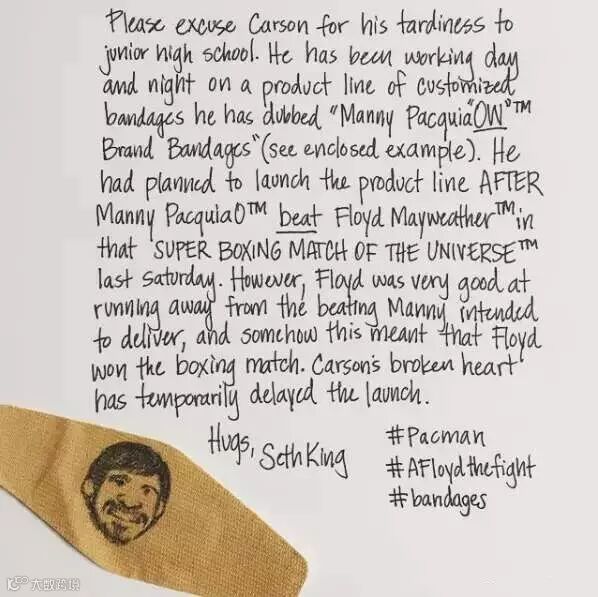 Please excuse Carson for his tardiness to
junior high school. He has been working day
and night on a product line of customized
bandages he has dubbed "Manny Pacquia"OW"™
Brand Bandages" (see enclosed example). He
had planned to launch the product line AFTER
Manny PacquiaO™ beat Floyd Mayweather™ in
that "SUPER BOXING MATCH OF THE UNIVERSE™
last Saturday. However, Floyd was very good at
running away from the beating Manny intended
to deliver, and somehow this meant that Floyd
won the boxing match. Carson's broken heart
has temporarily delayed the launch.
Hugs, Seth King
#Pacman
#AFloydthefight
#bandages
大数跨境